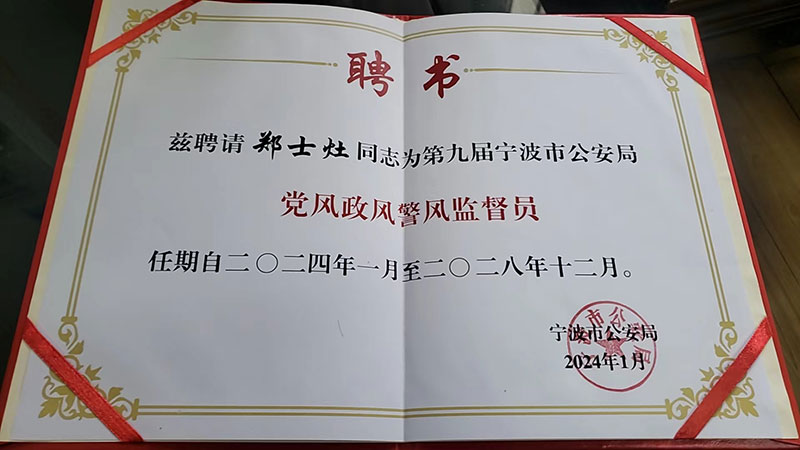 聘书
兹聘请 郑士灶 同志为第九届宁波市公安局
党风政风警风监督员
任期自二〇二四年一月至二〇二八年十二月。
宁波市公安局
2024年1月